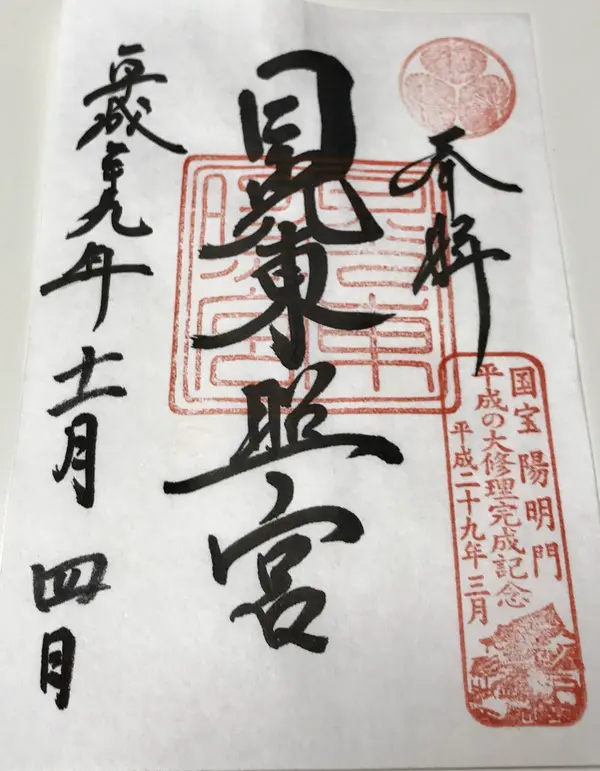 奉拝
国宝 陽明門
平成の大修理完成記念
平成二十九年三月
日光東照宮
平成二十九年十一月四日